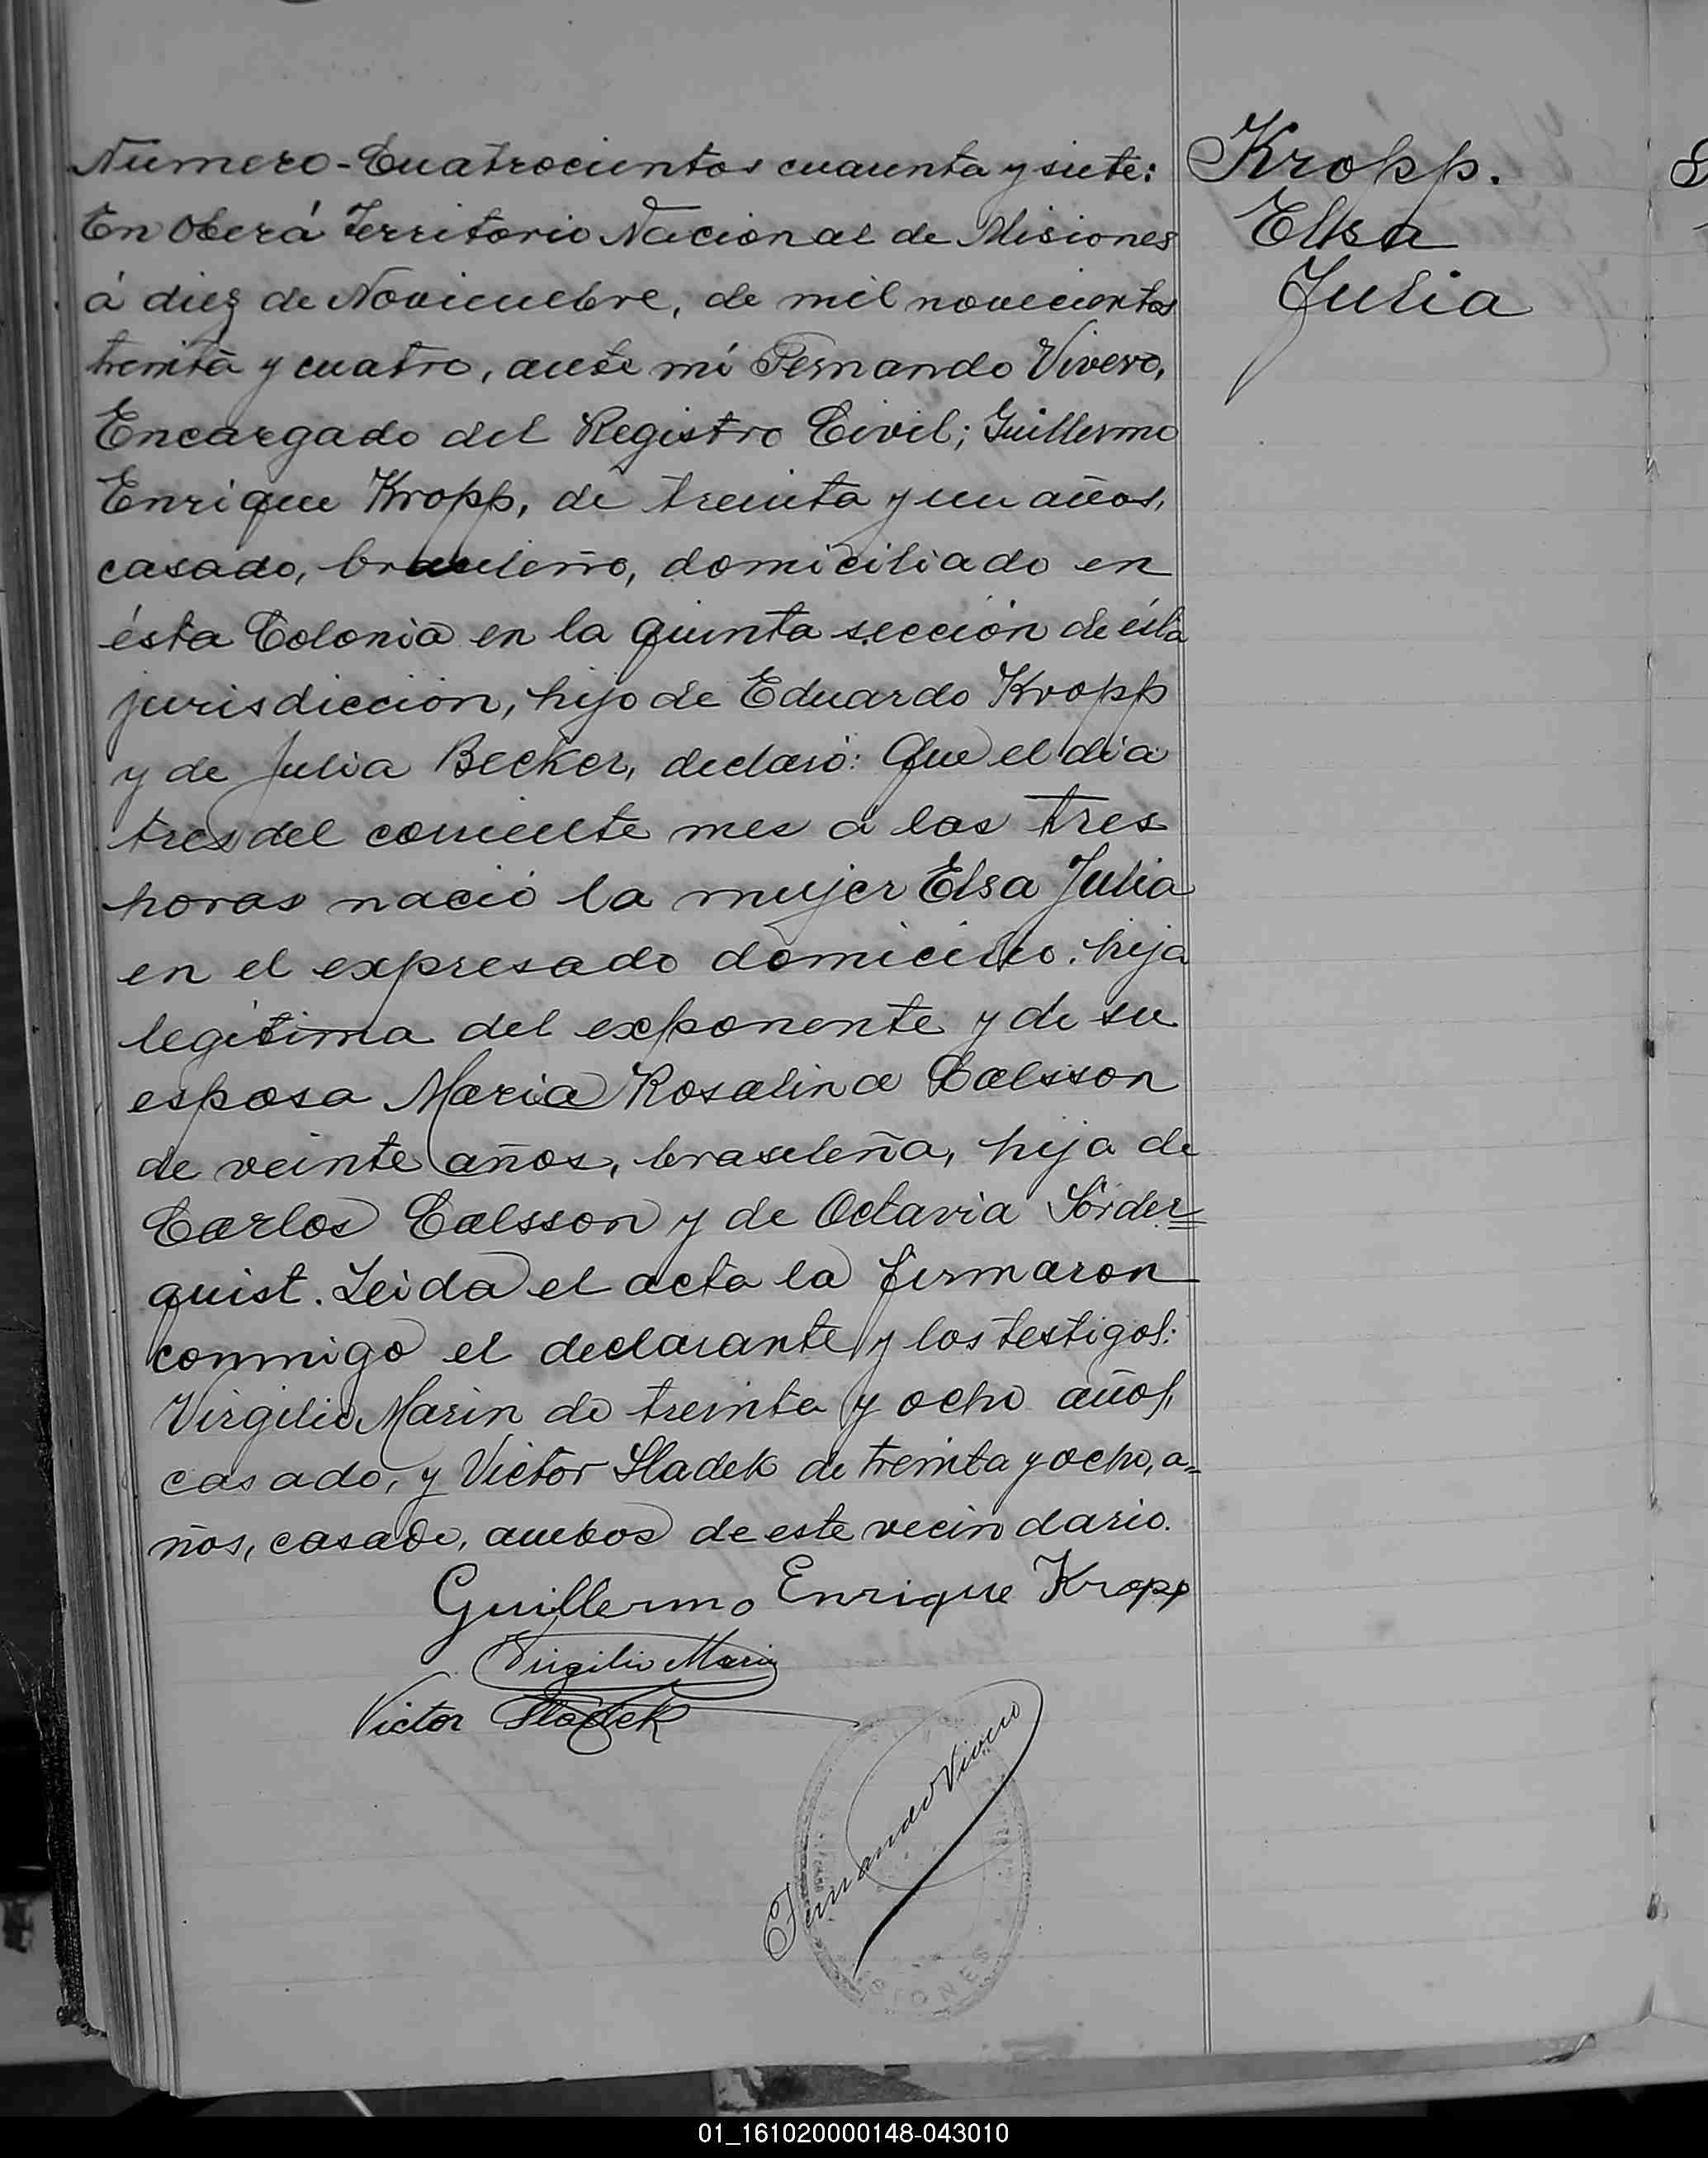 Numero-Cuatrocientos cuarenta y siete:
En Oberá Territorio Nacional de Misiones
á diez de Noviembre, de mil novecientos
treinta y cuatro, ante mí Fernando Vivero,
Encargado del Registro Civil; Guillermo
Enrique Kropp, de treinta y un años,
casado, brasileño, domiciliado en
ésta Colonia en la quinta sección de ésta
jurisdicción, hijo de Eduardo Kropp
y de Julia Becker, declaró: Que el día
tres del corriente mes á las tres
horas nació la mujer Elsa Julia
en el expresado domicilio. hija
legítima del exponente y de su
esposa Maria Rosalina Calsson
de veinte años, brasileña, hija de
Carlos Calsson y de Octavia Sörder=
quist. Leida el acta la firmaron
conmigo el declarante y los testigos:
Virgilio Marin de treinta y ocho años,
casado, y Victor Sladek de treinta y ocho, a=
ños, casado, ambos de este vecindario.
Guillermo Enrique Kropp
Virgilio Marin
Victor Sladek
Fernando Vivero
Kropp.
Elsa
Julia
01_161020000148-043010